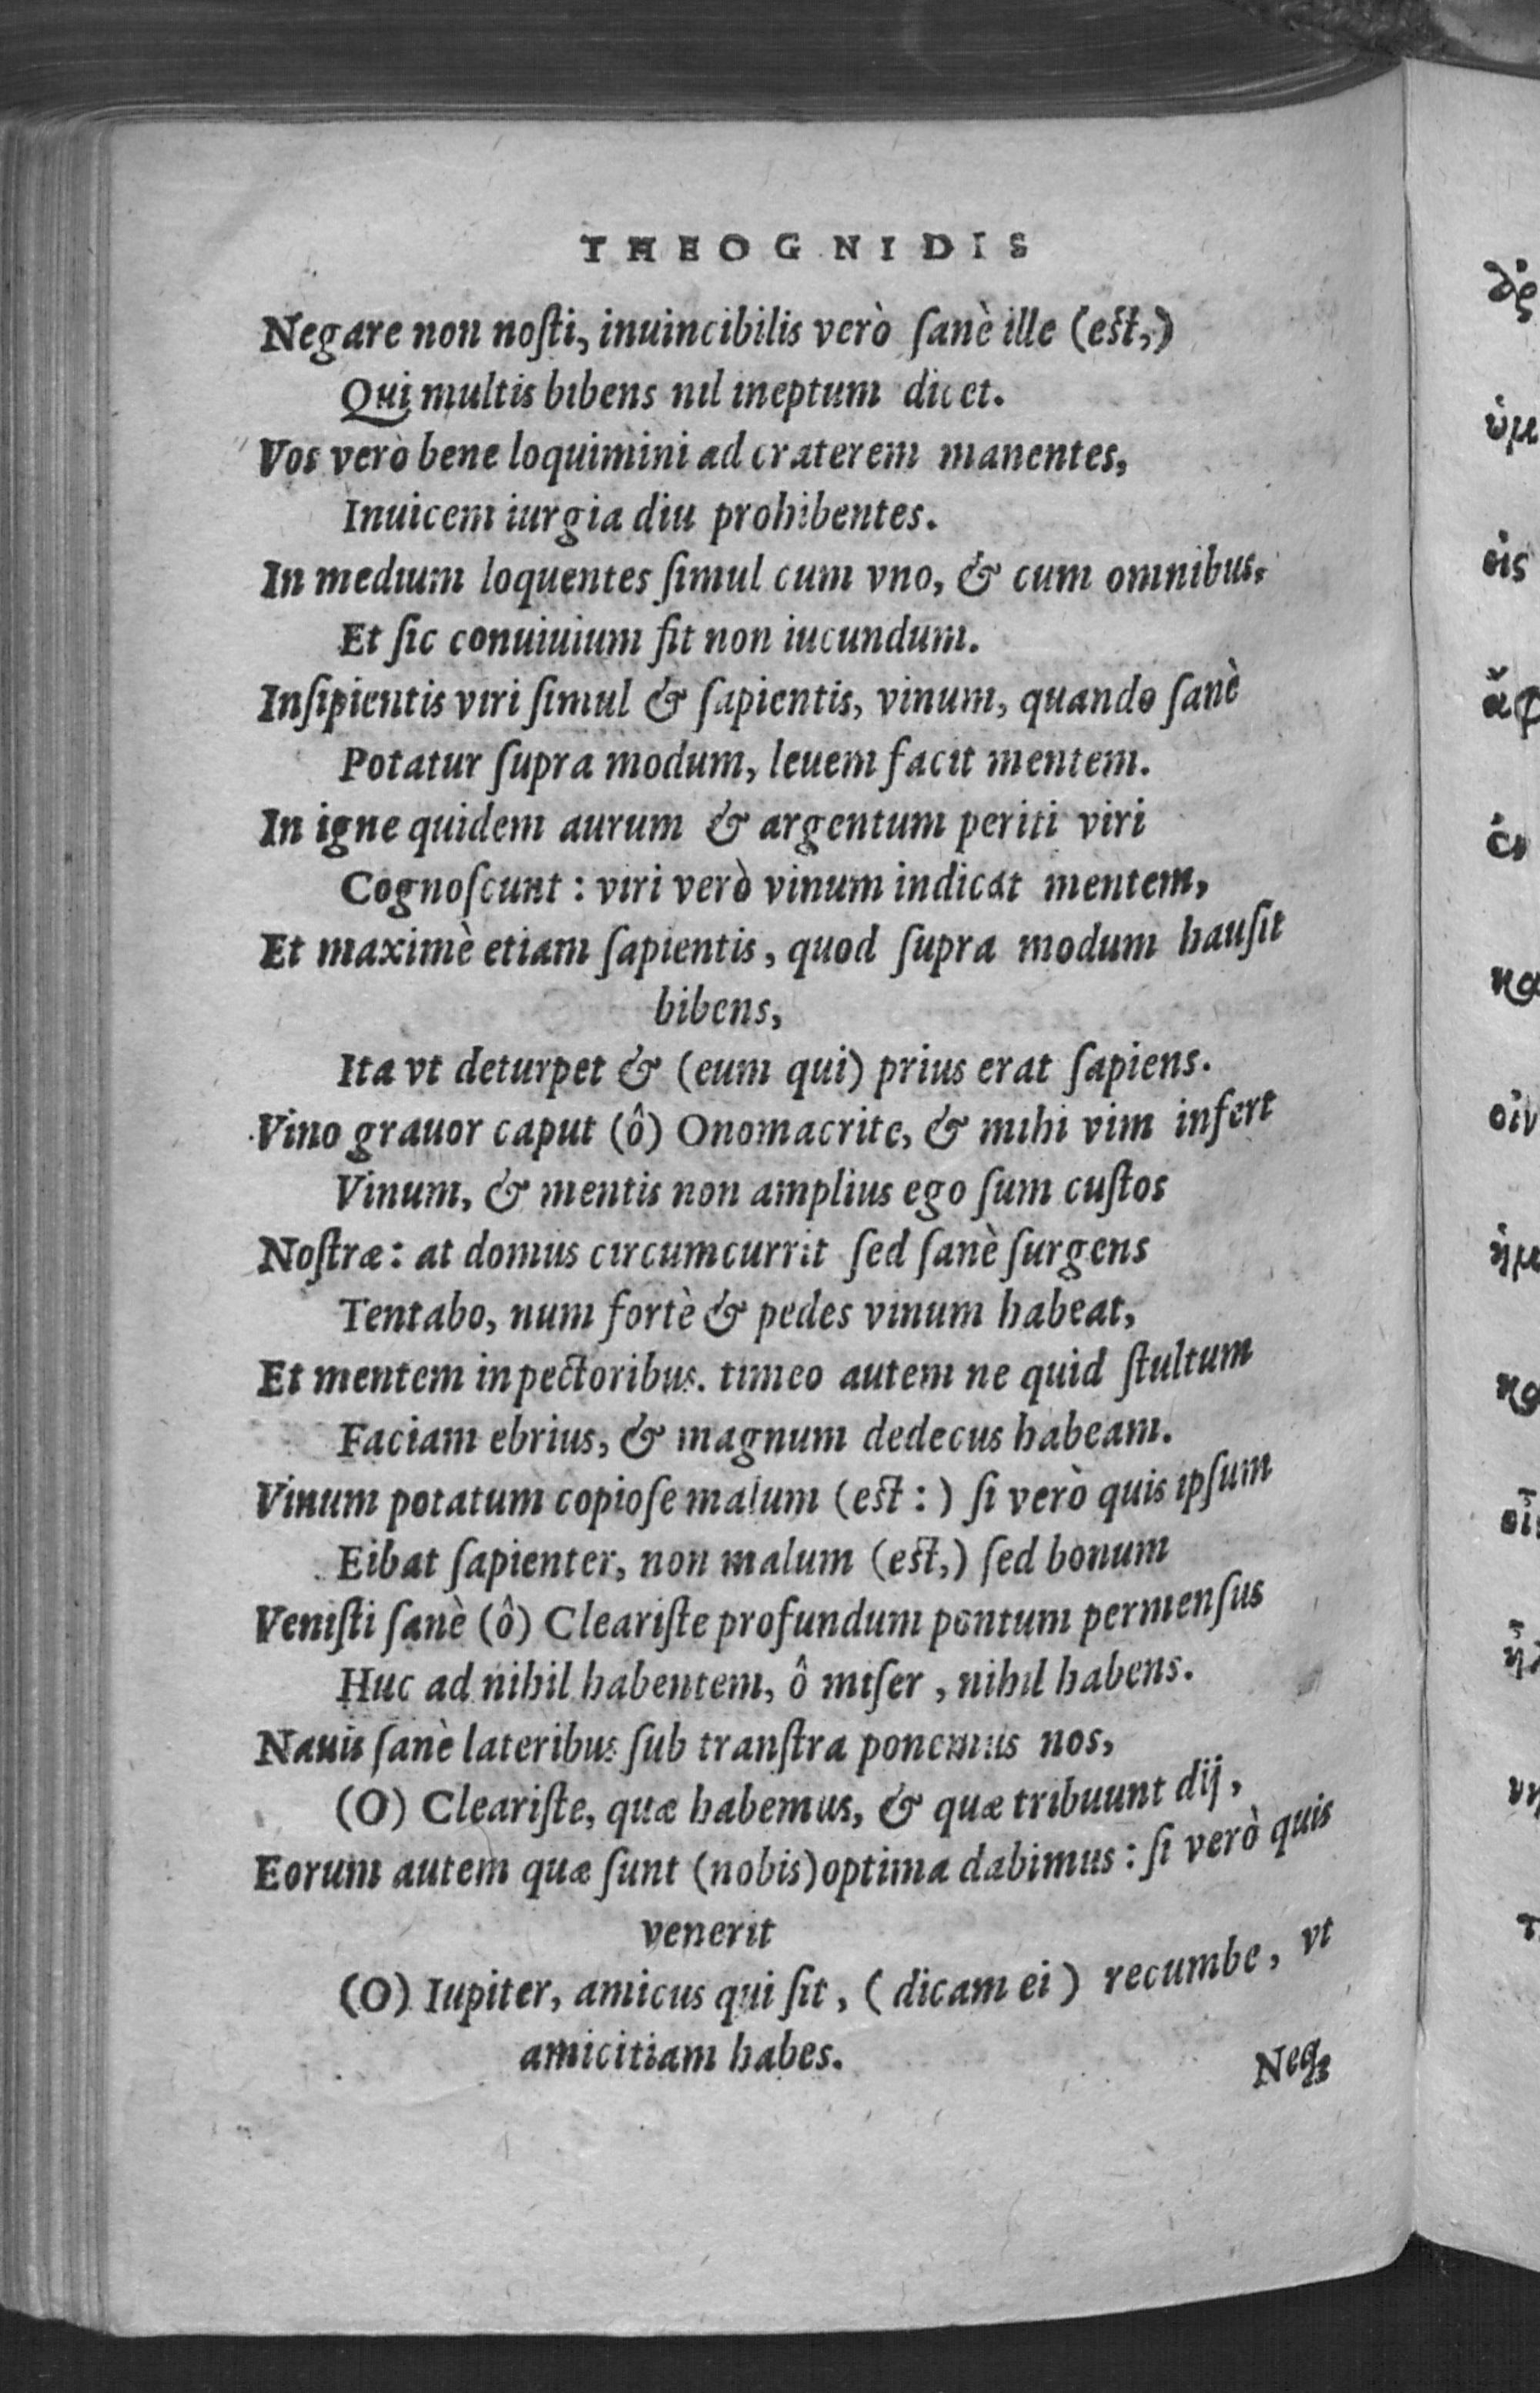 THEOGNIDIS
Negare non noſti, inuincibilis verò ſanè ille (eſt,)
Qui multis bibens nil ineptum dicet.
Vos verò bene loquimini ad craterem manentes,
Inuicem iurgia diu prohibentes.
In medium loquentes ſimul cum vno, & cum omnibus,
Et ſic conuiuium fit non iucundum.
Inſipientis viri ſimul & ſapientis, vinum, quando ſanè
Potatur ſupra modum, leuem facit mentem.
In igne quidem aurum & argentum periti viri
Cognoſcunt : viri verò vinum indicat mentem,
Et maximè etiam ſapientis, quod ſupra modum hauſit
bibens,
Ita vt deturpet & (eum qui) prius erat ſapiens.
Vino grauor caput (ô) Onomacrite, & mihi vim infert
Vinum, & mentis non amplius ego ſum cuſtos
Noſtræ: at domus circumcurrit ſed ſanè ſurgens
Tentabo, num fortè & pedes vinum habeat,
Et mentem in pectoribus. timeo autem ne quid ſtultum
Faciam ebrius, & magnum dedecus habeam.
Vinum potatum copioſe malum (eſt : ) ſi verò quis ipſum
Eibat ſapienter, non malum (eſt,) ſed bonum
Veniſti ſanè (ô) Cleariſte profundum pontum permenſus
Huc ad nihil habentem, ô miſer, nihil habens.
Nauis ſanè lateribus ſub tranſtra ponemus nos,
(O) Cleariſte, quæ habemus, & quæ tribuunt dij,
Eorum autem quæ ſunt (nobis) optima dabimus : ſi verò quis
venerit
(O) Iupiter, amicus qui ſit, ( dicam ei ) recumbe, vt
amicitiam habes.
Neq;
δ͂ς
ὑμ
εἰς
ἄφ
ἐν
κα
οἰν
ἡμ
κα
νη
τ